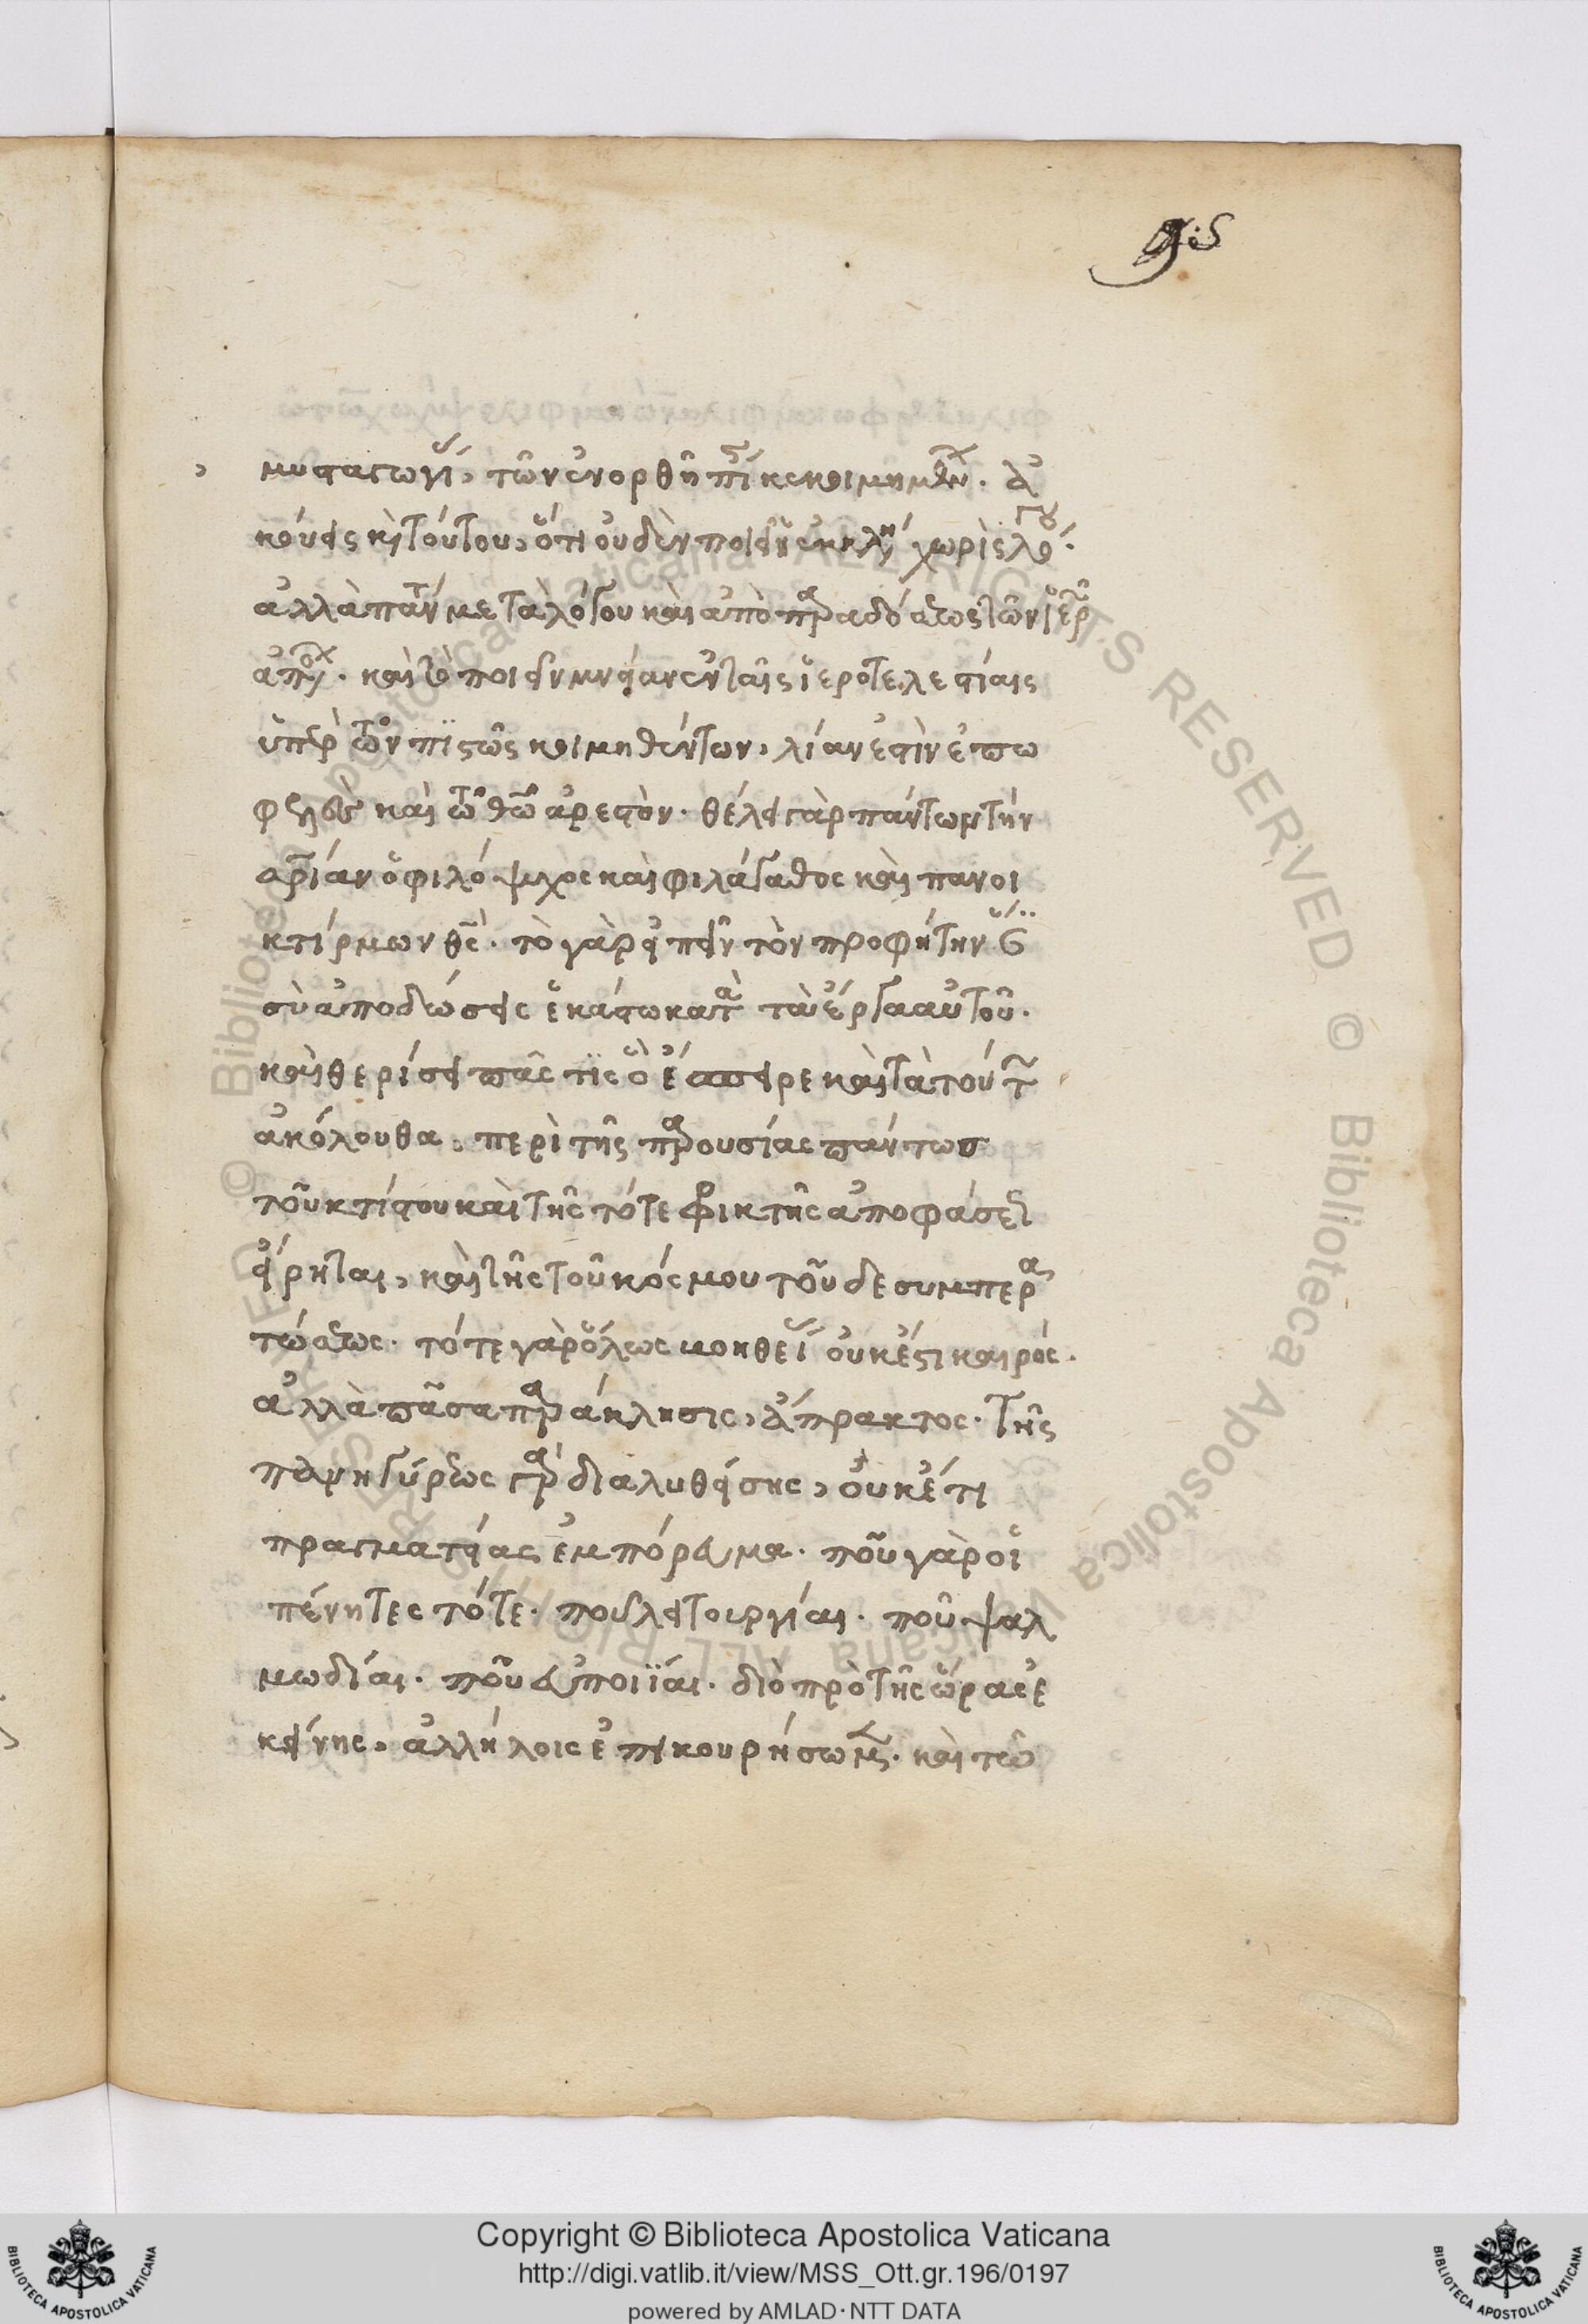 μυσταγωγί, τῶν ἐν ὀρθῆ πί κεκοιμημέν. ἀ
κούεις κ τούτου, ὅτι οὐδὲν ποιεῖ ἡ ἐκκλη χωρὶς λόγου.
ἀλλὰ πάντ μετὰ λόγου καὶ ἀπὸ παραδόσεως τῶν ἱερῶ
ἀπο. καὶ τὸ ποιεῖν μνείαν ἐν ταῖς ἱεροτελεστίαις
ὑπὲρ τῶν πιστῶς κοιμηθέντων, λίαν ἐστὶν ἐπω
φελὲς καὶ τῶ θῶ ἀρεστόν. θέλει γὰρ πάντων τὴν
σρίαν ὁ φιλόψυχος καὶ φιλάγαθος καὶ πανοι
κτίρμων θς. τὸ γὰρ εἰπεῖν τὸν προφήτην ὅτι
σὺ ἀποδώσεις ἑκάστω κατὰ τὰ ἔργα αὐτοῦ.
καὶ θερίσει πᾶς τις ὃ ἔσπειρε καὶ τὰ τούτ
ἀκόλουθα, περὶ τῆς παρουσίας πάντως
τοῦ κτίστου καὶ τῆς τότε φρικτῆς ἀποφάσε
εἴρηται, καὶ τῆς τοῦ κόσμου τοῦδε συμπερα
τώσεως. τότε γὰρ ὅλως βοηθεί οὐκ ἔστι καιρός.
ἀλλὰ πᾶσα παράκλησις, ἄπρακτος. τῆς
πανηγύρεως γὰρ διαλυθείσης, οὐκέτι
πραγματείας ἐμπόρευμα. ποῦ γὰρ οἱ
πένητες τότε. ποῦ λειτουργίαι. ποῦ ψαλ
μωδίαι. ποῦ εὐποιϊαι. διὸ πρὸ τῆς ὥρας ἐ
κείνης, ἀλλήλοις ἐπικουρήσωμεν. καὶ τῶ
Copyright © Biblioteca Apostolica Vaticana
http://digi.vatlib.it/view/MSS_Ott.gr.196/0197
powered by AMLAD·NTT DATA